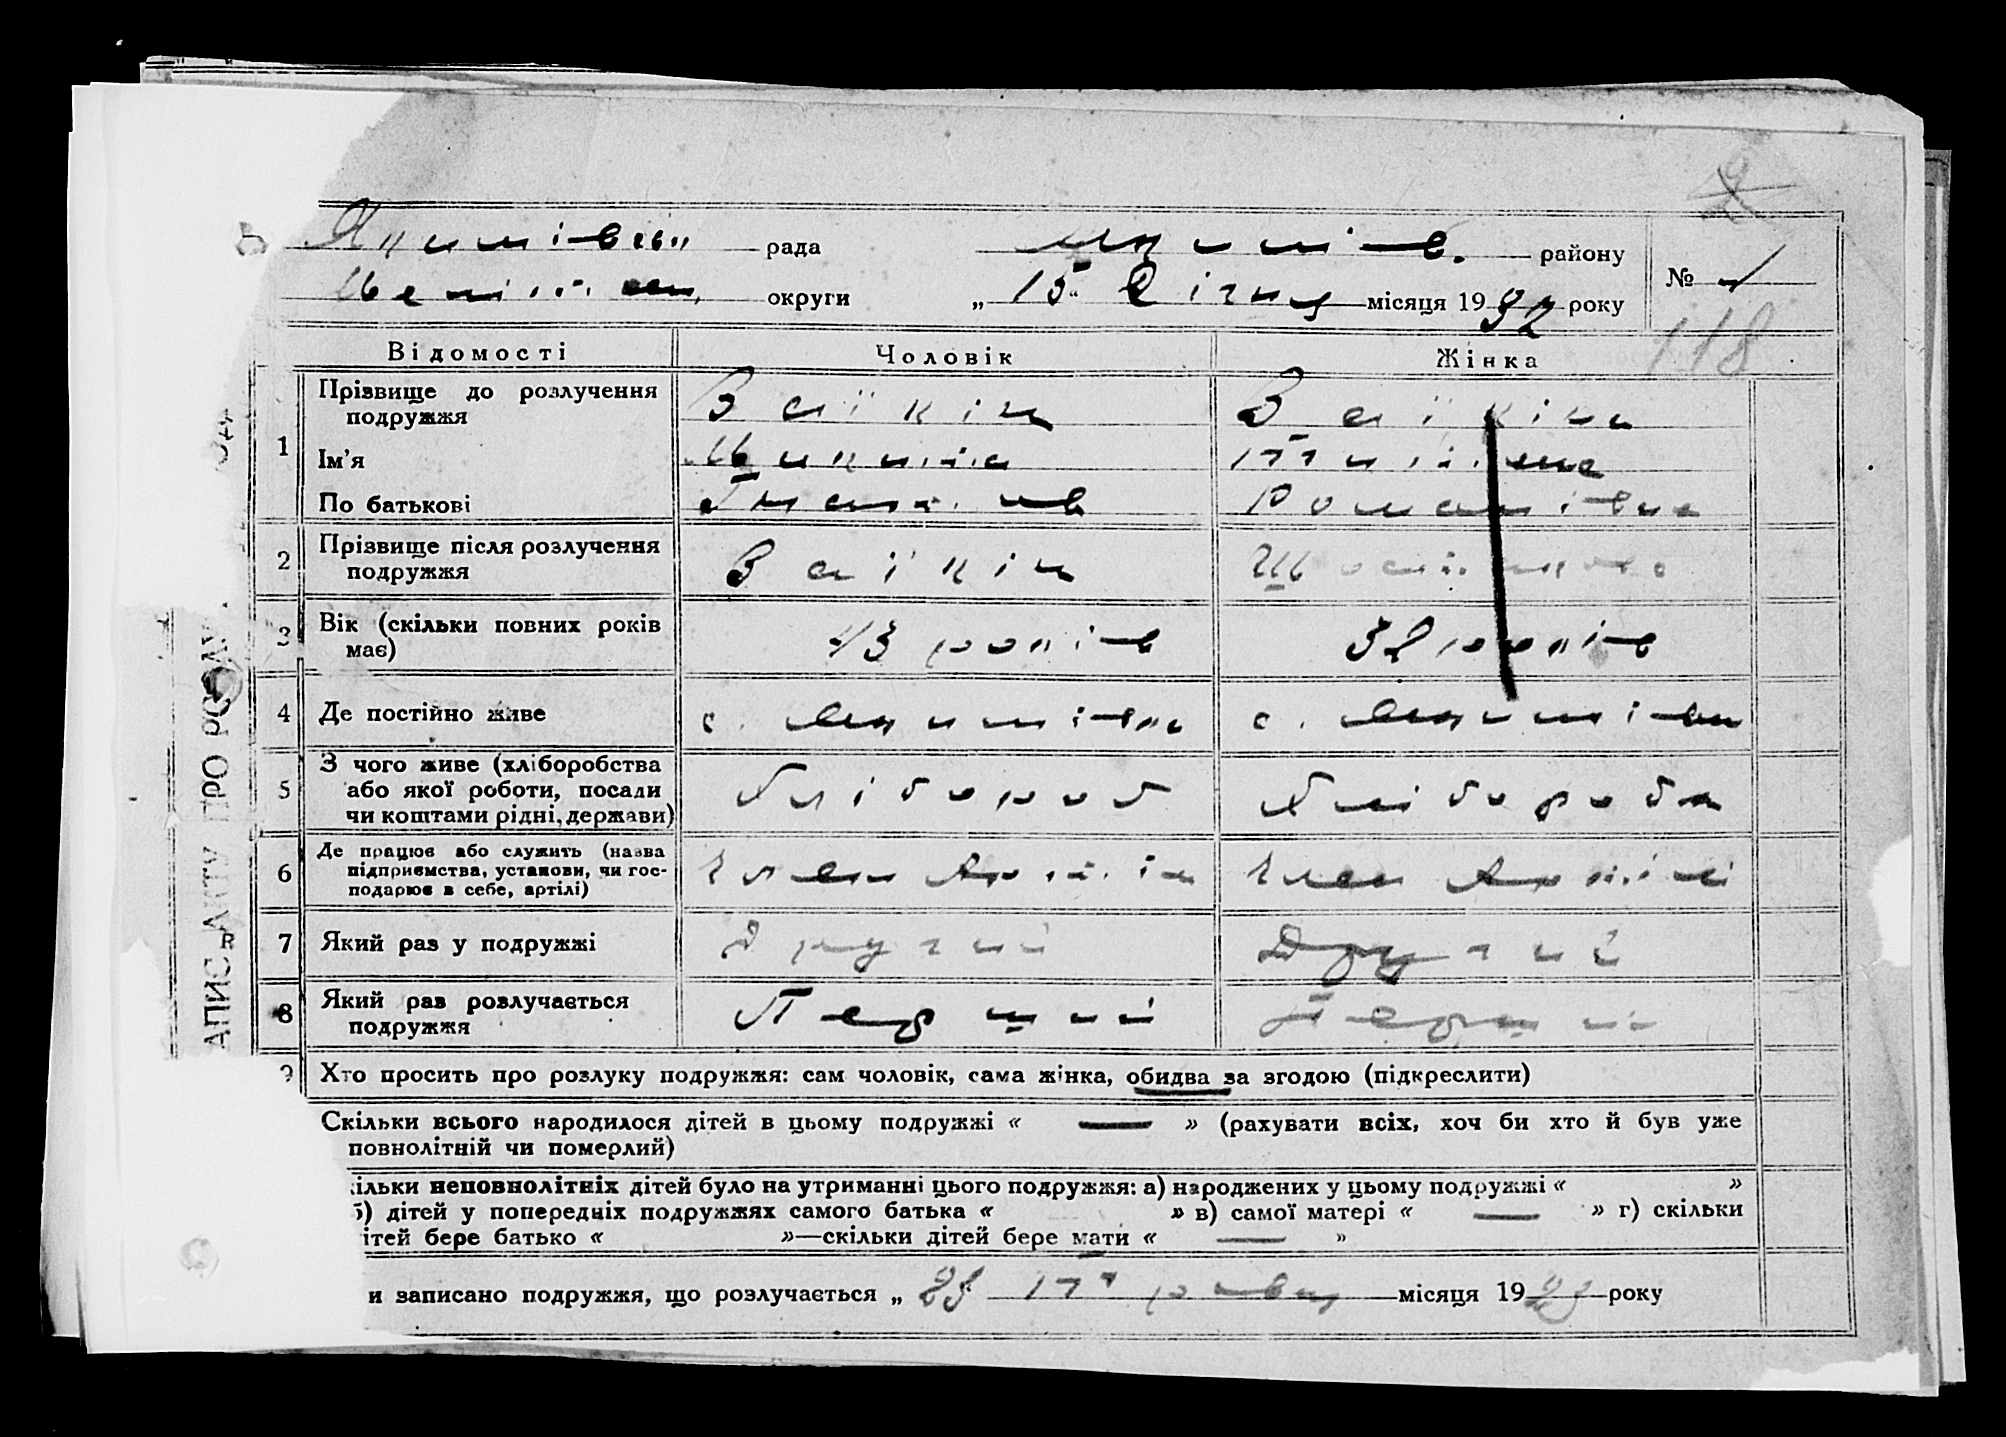 рада району №
округи „ 15 " Січня місяця 1932 року
118
Відомості Чоловік Жінка
1 Прізвище до розлучення
подружжя
Ім'я
По батькові Романівна
2 Прізвище після розлучення
подружжя
3 Вік (скільки повних років 43 років 32 років
має)
4 Де постійно живе с. с.
5 З чого живе (хліборобства Хлібороб Хлібороба
або якої роботи, посади
чи коштами рідні, держави)
6 Де працює або служить (назва Член Артілі Член Артілі
підприємства, установи, чи гос-
подарює в себе, артілі)
7 Який раз у подружжі Другий Другий
8 Який раз розлучається Перший Перший
подружжя
Хто просить про розлуку подружжя: сам чоловік, сама жінка, обидва за згодою (підкреслити)
Скільки всього народилося дітей в цьому подружжі « — » (рахувати всіх, хоч би хто й був уже
повнолітній чи померлий)
ільки неповнолітніх дітей було на утриманні цього подружжя: а) народжених у цьому подружжі « »
б) дітей у попередніх подружжях самого батька « » в) самої матері « — » г) скільки
ітей бере батько « »—скільки дітей бере мати « — »
и записано подружжя, що розлучається „ місяця 19 року
АПИС АКТУ ПРО РОЗЛ